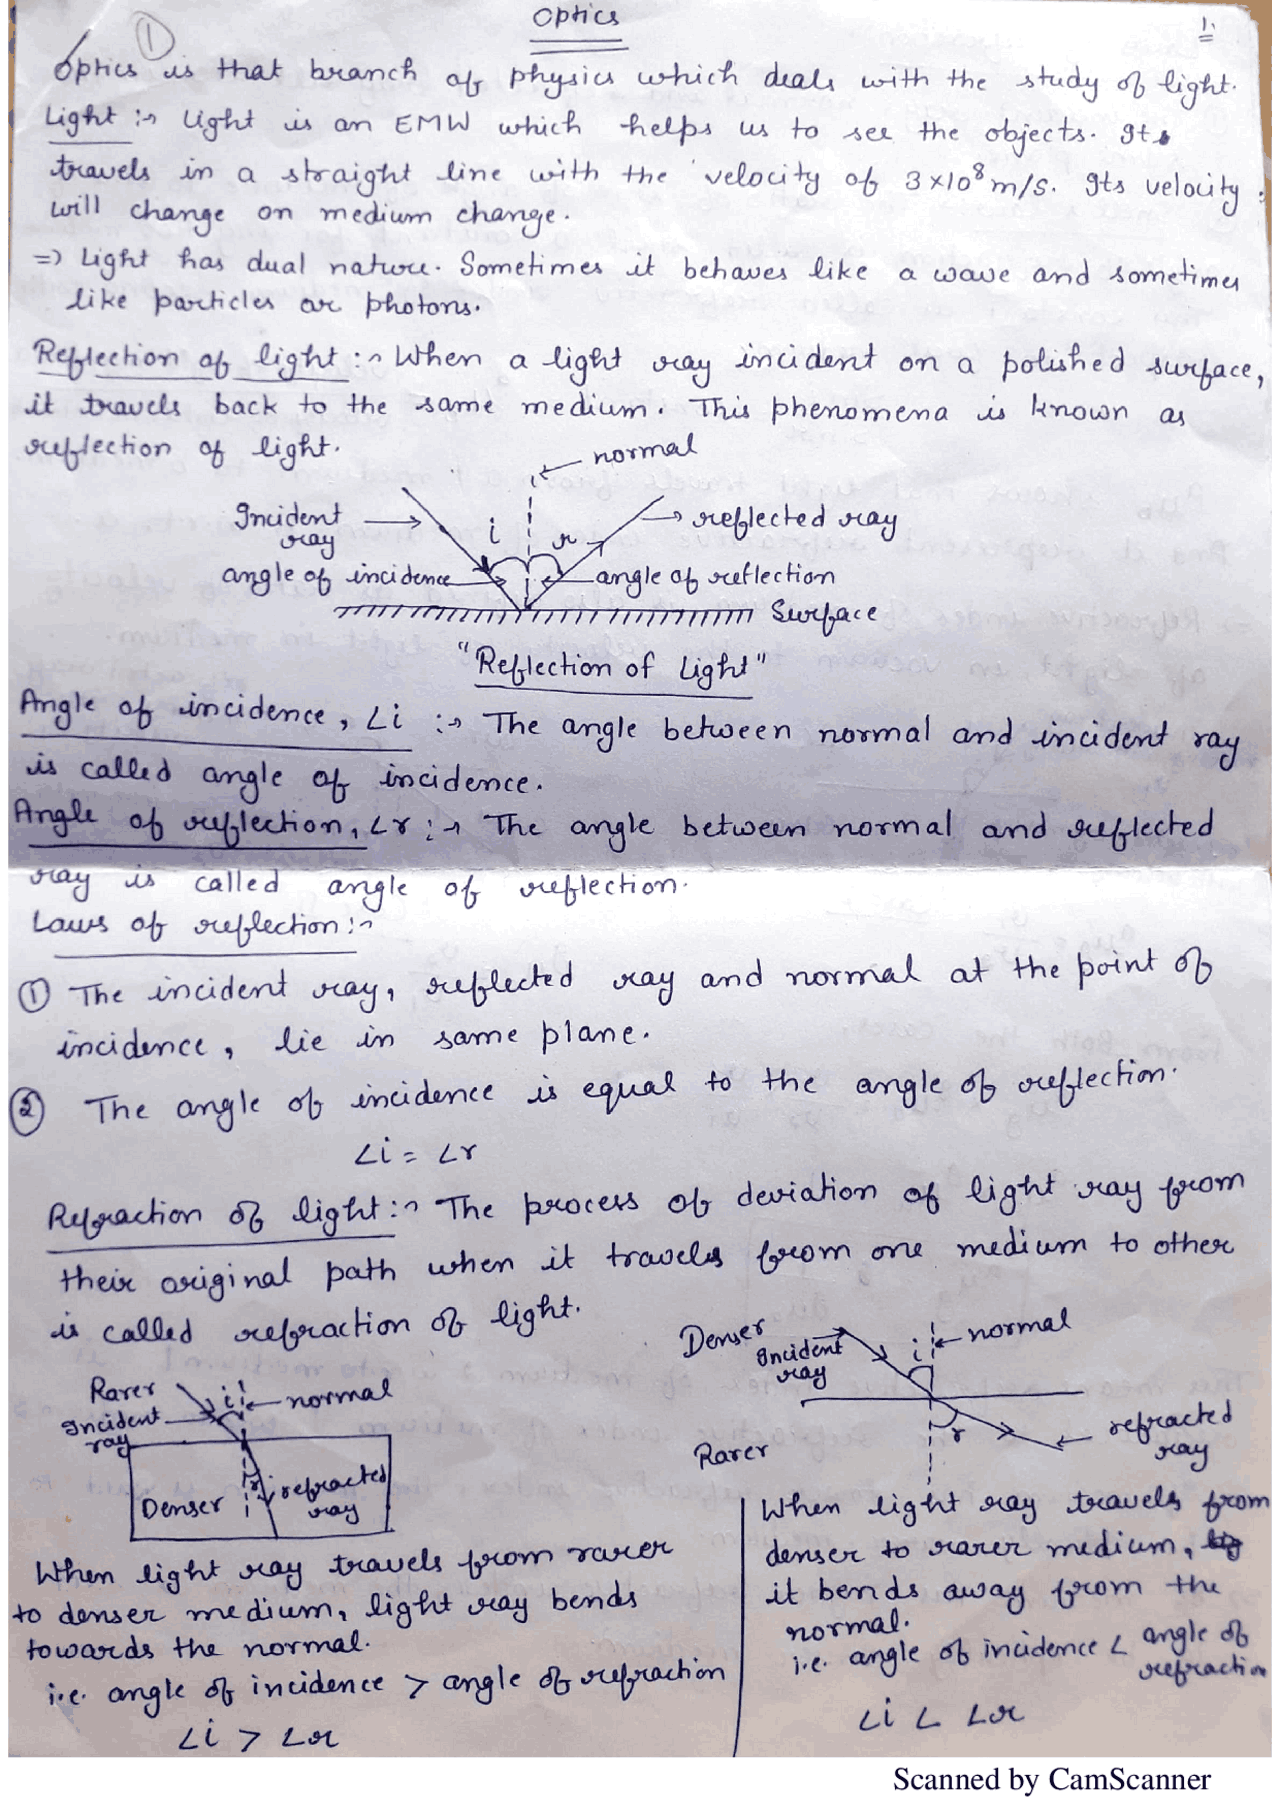 Optics
1.
①
Optics is that branch of physics which deals with the study of light.
Light :→ Light is an EMW which helps us to see the objects. Its
travels in a straight line with the velocity of 3×10⁸ m/s. Its velocity
will change on medium change.
=> Light has dual nature. Sometimes it behaves like a wave and sometimes
like particles or photons.
Reflection of light :→ When a light ray incident on a polished surface,
it travels back to the same medium. This phenomena is known as
reflection of light.
normal
Incident
ray
i
r
reflected ray
angle of incidence
angle of reflection
Surface
"Reflection of Light"
Angle of incidence, ∠i :→ The angle between normal and incident ray
is called angle of incidence.
Angle of reflection, ∠r :→ The angle between normal and reflected
ray is called angle of reflection.
Laws of reflection :→
① The incident ray, reflected ray and normal at the point of
incidence, lie in same plane.
② The angle of incidence is equal to the angle of reflection.
∠i = ∠r
Refraction of light :→ The process of deviation of light ray from
their original path when it travels from one medium to other
is called refraction of light.
Rarer
Incident
ray
i
normal
Denser
r
refracted
ray
When light ray travels from rarer
to denser medium, light ray bends
towards the normal.
i.e. angle of incidence > angle of refraction
∠i > ∠r
Denser
Incident
ray
i
normal
Rarer
r
refracted
ray
When light ray travels from
denser to rarer medium,
it bends away from the
normal.
i.e. angle of incidence < angle of
refraction
∠i < ∠r
Scanned by CamScanner